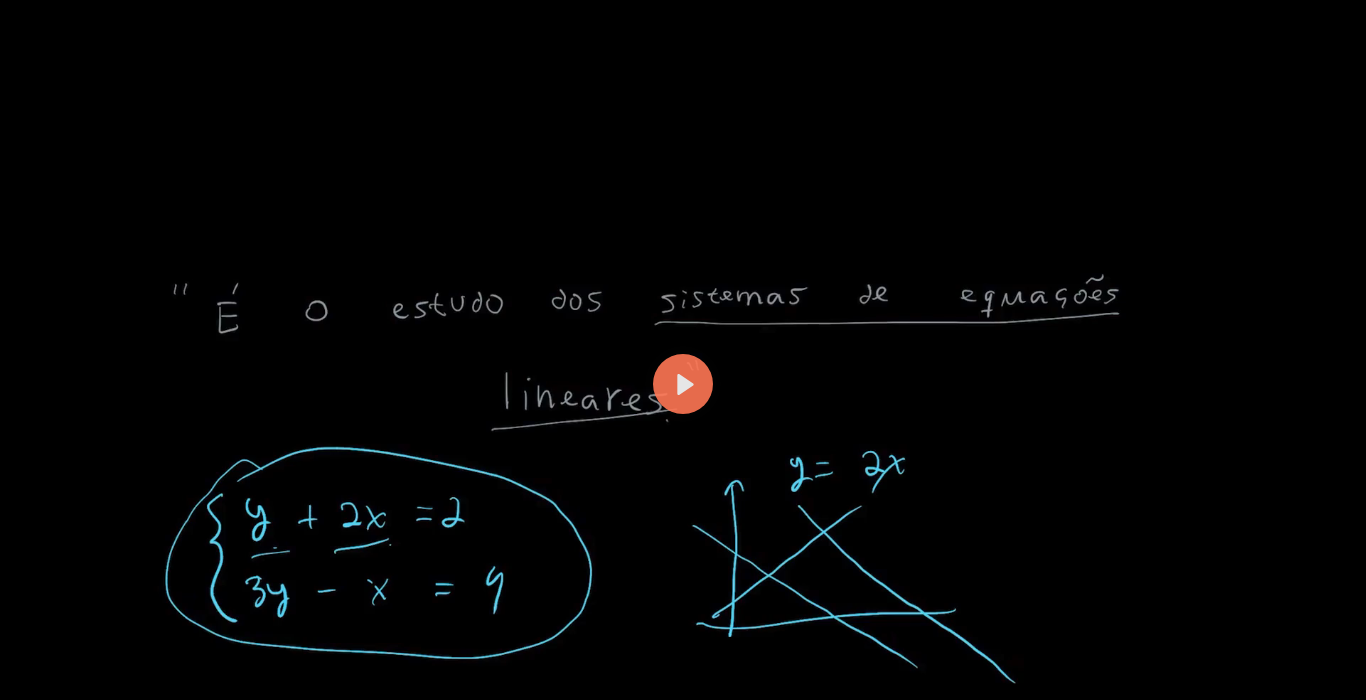 "É o estudo dos sistemas de equações
lineares"
y = 2x
y + 2x = 2
3y - x = 9